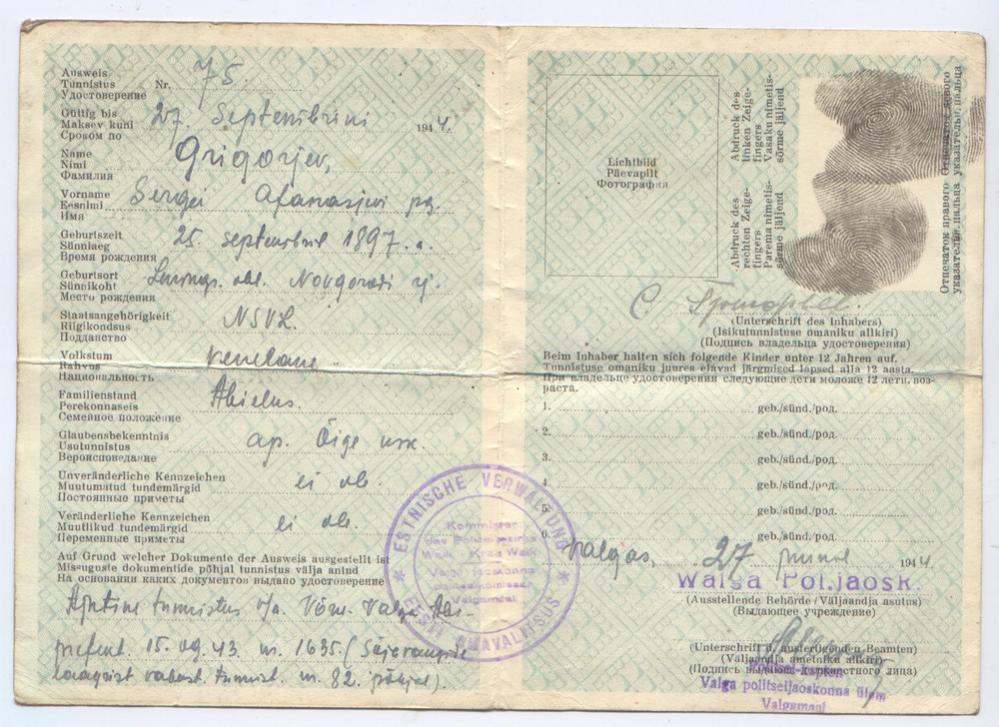 Ausweis
Tunnistus Nr. 75
Удостоверение
Gültig bis
Maksev kuni 27. Septembrini 1944.
Сроком по
Name
Nimi Grigorjev,
Фамилия
Vorname
Eesnimi Sergei Afanasjevi pg.
Имя
Geburtszeit
Sünniaeg 25. septembril 1897. a.
Время рождения
Geburtsort
Sünnikoht obl. Novgorodi
Место рождения
Staatsangehörigkeit
Riigikondsus NSVL.
Подданство
Volkstum
Rahvus venelane
Национальность
Familienstand
Perekonnaseis Abielus.
Семейное положение
Glaubensbekenntnis
Usutunnistus ap. Õige usk.
Вероисповедание
Unveränderliche Kennzeichen
Muutumatud tundemärgid ei ole.
Постоянные приметы
Veränderliche Kennzeichen
Muutlikud tundemärgid ei ole.
Переменные приметы
Auf Grund welcher Dokumente der Ausweis ausgestellt ist
Missuguste dokumentide põhjal tunnistus välja antud
На основании каких документов выдано удостоверение
Ajutine tunnistus v/a. Võru-Valga
prefekt. 15. 09. 43. nr. 1635. (Sõjavangide
laagrist vabast. tunnist. nr. 82. põhjal).
ESTNISCHE VERWALTUNG
EESTI OMAVALITSUS
Lichtbild
Päevapilt
Фотография
Abdruck des
linken Zeige-
fingers
Vasaku nimetis-
sõrme jäljend
Abdruck des
rechten Zeige-
fingers
Parema nimetis-
sõrme jäljend
Отпечаток левого
указательн. пальца
Отпечаток правого
указательн. пальца
С Григорьев.
(Unterschrift des Inhabers)
(Isikutunnistuse omaniku allkiri)
(Подпись владельца удостоверения)
Beim Inhaber halten sich folgende Kinder unter 12 Jahren auf.
Tunnistuse omaniku juures elavad järgmised lapsed alla 12 aasta.
При владельце удостоверения следующие дети моложе 12 летн. воз-
раста.
1. geb./sünd./род.
2. geb./sünd./род.
3. geb./sünd./род.
4. geb./sünd./род.
5. geb./sünd./род.
6. geb./sünd./род.
Valgas, 27 juunil 1944
Walga Pol.jaosk.
(Ausstellende Behörde/Väljaandja asutus)
(Выдающее учреждение)
(Unterschrift d. ausfertigenden Beamten)
(Väljaandja ametniku allkiri)
(Подпись должностного лица)
Valga politseijaoskonna ülem
Valgamaal